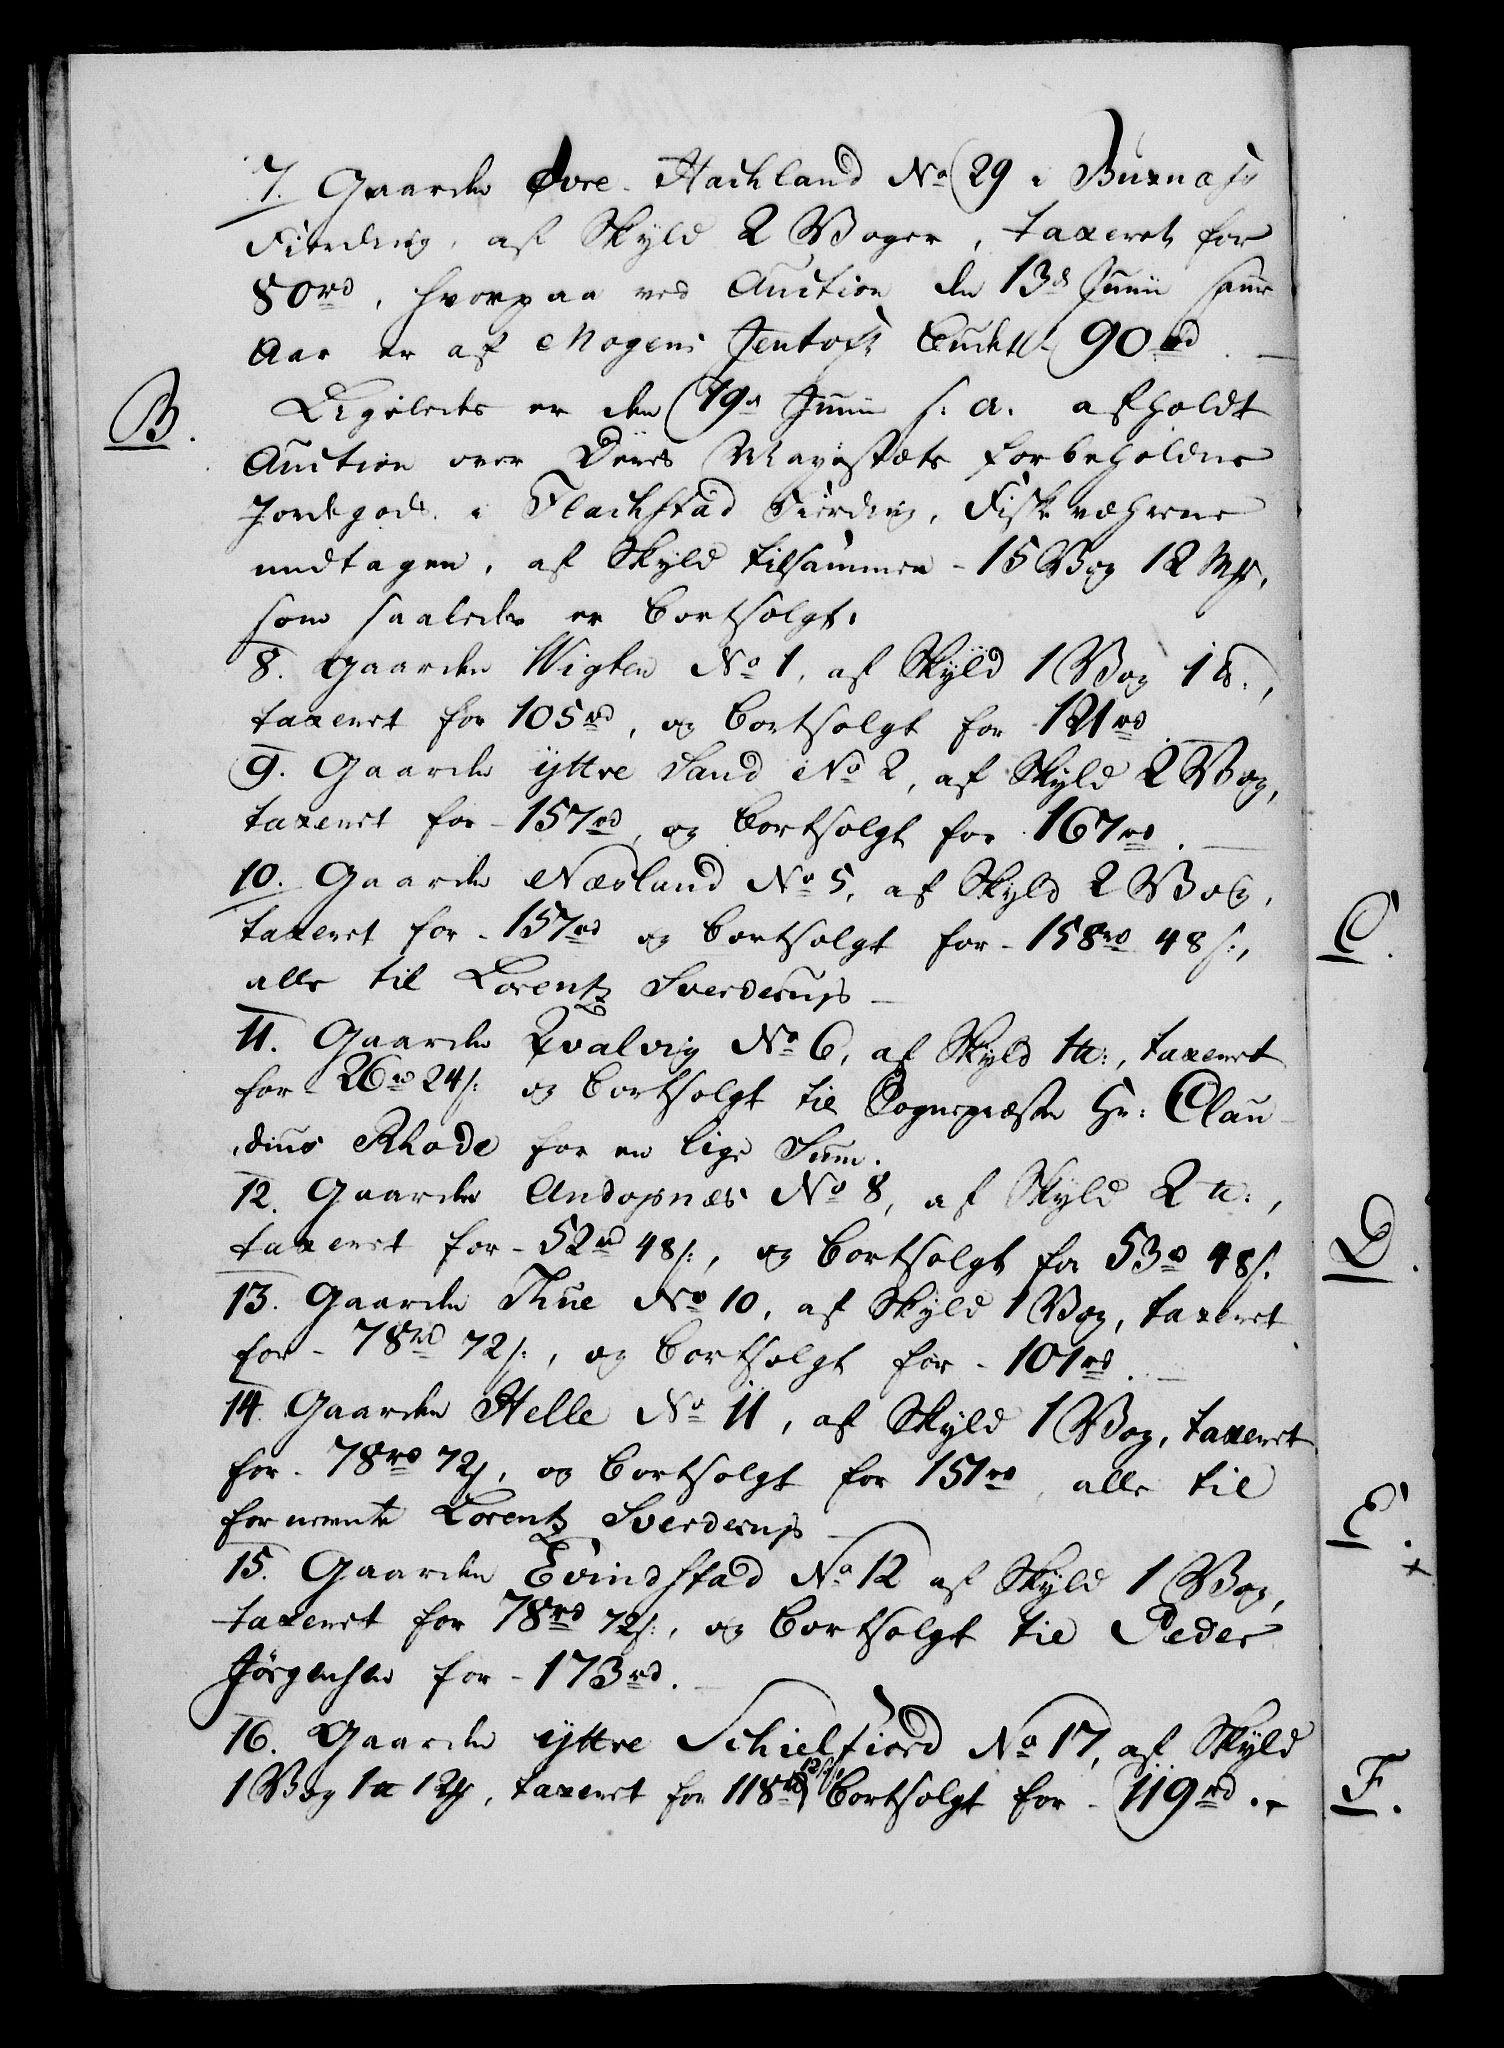 7. Gaarden Øvre-Hachland No 29 i Buxnæs
Fierding, af Skyld 2 Woger, taxeret for
80rd, hvorpaa ved Auction den 13de Junii samme
Aar er af Mogens Jentoft budet 90rd.
B. Ligeledes er den 19de Junii s: a. afholdt
Auction over Deres Mayestæts forbeholdne
Jordegods i Flachstad Fierding, Fiskeværerne
undtagen, af Skyld tilsammen - 15 Vog 12 Mk,
som saaledes er bortsolgt.
8. Gaarden Wigten No 1, af Skyld 1 Vog 1 ℔.,
taxeret for 105rd, og bortsolgt for 121rd
9. Gaarden ÿttre Sand No 2, af Skyld 2 Vog,
taxeret for - 157rd, og bortsolgt for 167rd.
10. Gaarden Næsland No 5, af Skyld 2 Vog,
taxeret for - 157rd og bortsolgt for - 158rd 48 s:,
alle til Lorentz Sverdrup
11. Gaarden Qvalvig No 6, af Skyld 1 ℔:, taxeret
for - 26rd 24 s: og bortsolgt til Sognepræsten Hr: Clau-
dius Rhode for en lige Sum.
12. Gaarden Andopnæs No 8, af Skyld 2 ℔:,
taxeret for - 52rd 48 s:, og bortsolgt for 53rd 48 s.
13. Gaarden Thue No 10, af Skyld 1 Vog, taxeret
for - 78rd 72 s:, og bortsolgt for - 101rd.
14. Gaarden Helle No 11, af Skyld 1 Vog, taxeret
for - 78rd 72 s, og bortsolgt for 151rd, alle til
fornævnte Lorentz Sverdrup
15. Gaarden Evindstad No 12 af Skyld 1 Vog,
taxeret for 78rd 72 s:, og bortsolgt til Peder
Jörgensen for - 173rd.
16. Gaarden ÿttre Schielfiord No 17, af Skyld
1 Vog 1 ℔ 12 Mk, taxeret for 118rd 12 s, bortsolgt for - 119rd.
C.
D.
E.
F.